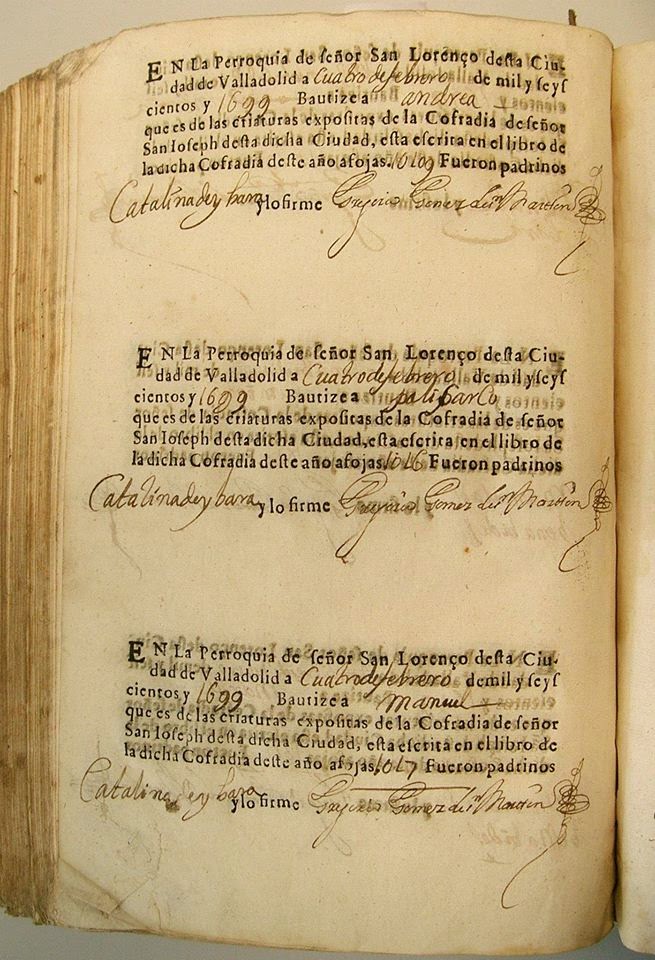 EN La Perroquia de señor San Lorenço desta Ciu-
dad de Valladolid a Cuatro de febrero de mil y seys
cientos y 1699 Bautize a andrea
que es de las criaturas expositas de la Cofradia de señor
San Ioseph desta dicha Ciudad, esta escrita en el libro de
la dicha Cofradia deste año afojas. Fueron padrinos
Catalina de ybara y lo firme Gregorio Gomez de Sn Martin
EN La Perroquia de señor San Lorenço desta Ciu-
dad de Valladolid a Cuatro de febrero de mil y seys
cientos y 1699 Bautize a
que es de las criaturas expositas de la Cofradia de señor
San Ioseph desta dicha Ciudad, esta escrita en el libro de
la dicha Cofradia deste año afojas. 1016 Fueron padrinos
Catalina de ybara y lo firme Gregorio Gomez de Sn Martin
EN La Perroquia de señor San Lorenço desta Ciu-
dad de Valladolid a Cuatro de febrero de mil y seys
cientos y 1699 Bautize a Manuel
que es de las criaturas expositas de la Cofradia de señor
San Ioseph desta dicha Ciudad, esta escrita en el libro de
la dicha Cofradia deste año afojas. 1017 Fueron padrinos
Catalina de ybara y lo firme Gregorio Gomez de Sn Martin